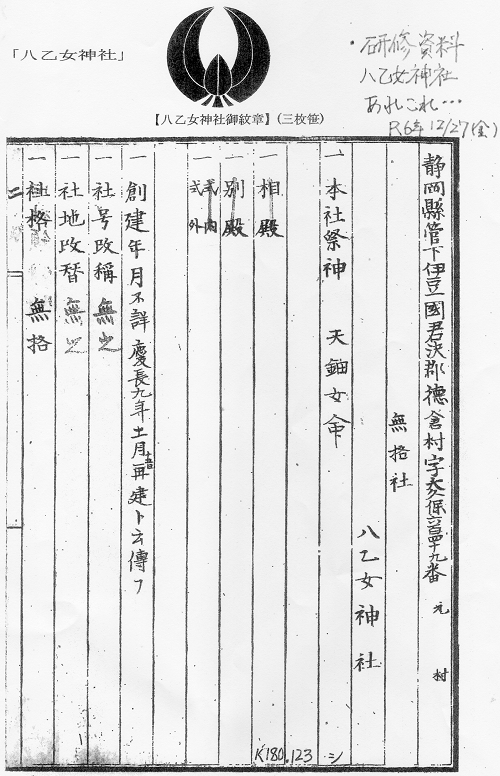 「八乙女神社」
【八乙女神社御紋章】(三枚笹)
・研修資料
八乙女神社
あれこれ…
R6年12/27(金)
静岡縣管下伊豆國君沢郡德倉村字大久保 番
元村
無格社
八乙女神社
一 本社祭神 天鈿女命
一 相殿
一 別殿
一 式内
式外
一 創建年月不詳慶長九年十一月 再建ト云傳フ
一 社号改称 無之
一 社地改替 無之
一 社格 無格
二
K180.123 シ